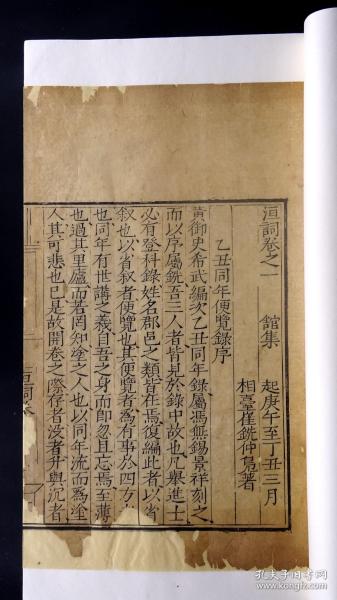 洹詞卷之一　館集　起庚午至丁丑三月
相臺崔銑仲鳧著
乙丑同年便覽錄序
黃御史希武編次乙丑同年錄屬馮無錫景祥刻之
而以序屬銑吾三人者皆見於錄中故也凡舉進士
必有登科錄姓名郡邑之類皆在焉復編此者以省
敘也以省敘者便覽也其便覽者為有事於四方
也同年有世講之義自吾之身而即忽且忘焉至薄
也過其里廬而若罔知塗之人也以同年流而為塗
人其可悲也已是故開卷之際存者没者升與沉者
洹詞卷
孔夫子旧书网